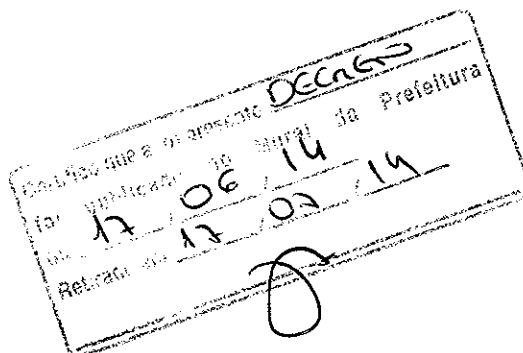 Certifico que a o presente DECRETO
foi publicado no Mural da Prefeitura
em 17 / 06 / 14
Retirado em 17 / 07 / 14